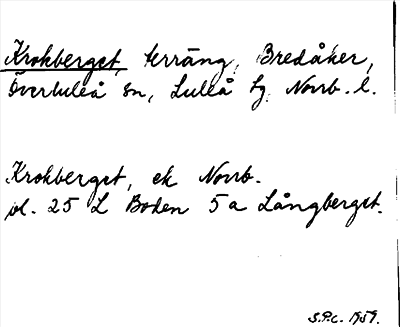 Krokberget, terräng, Bredåker,
Överluleå sn, Luleå tg. Norrb. l.
Krokberget, ek Norrb.
pl. 25 L Boden 5a Långberget.
S.P.C. 1959.